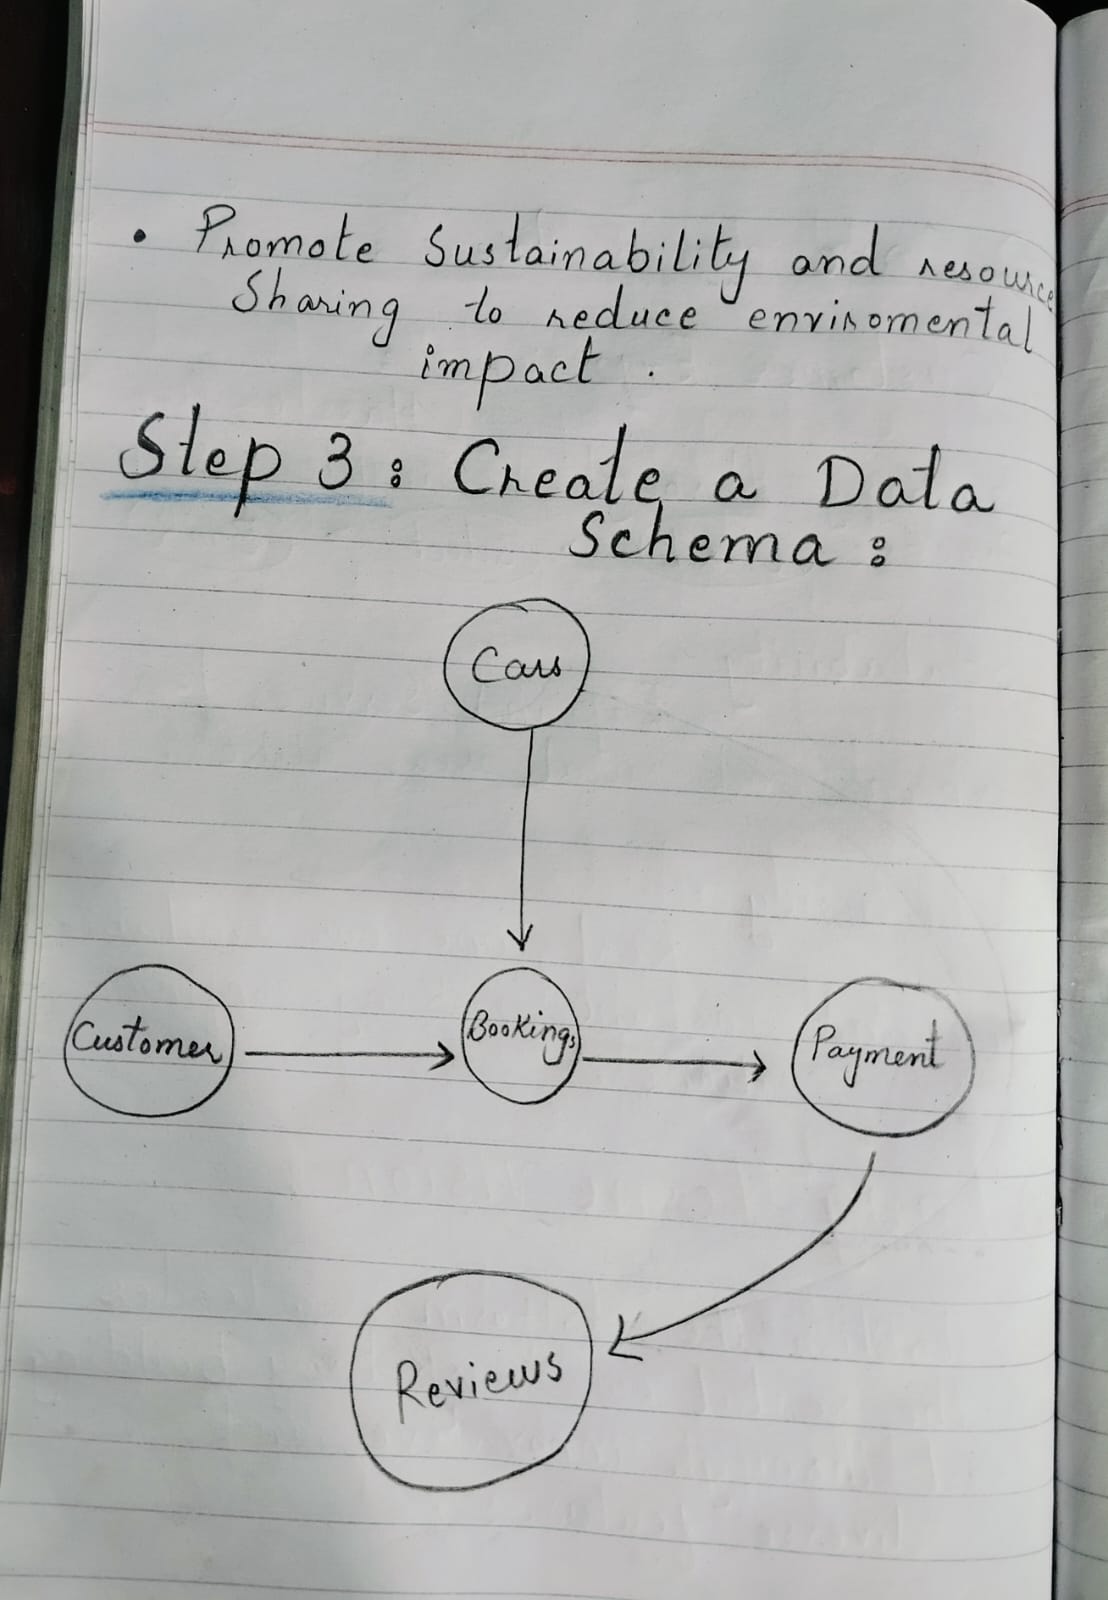 • Promote Sustainability and resource
Sharing to reduce enviromental
impact .
Step 3 : Create a Data
Schema :
Cars
Customer
Bookings
Payment
Reviews